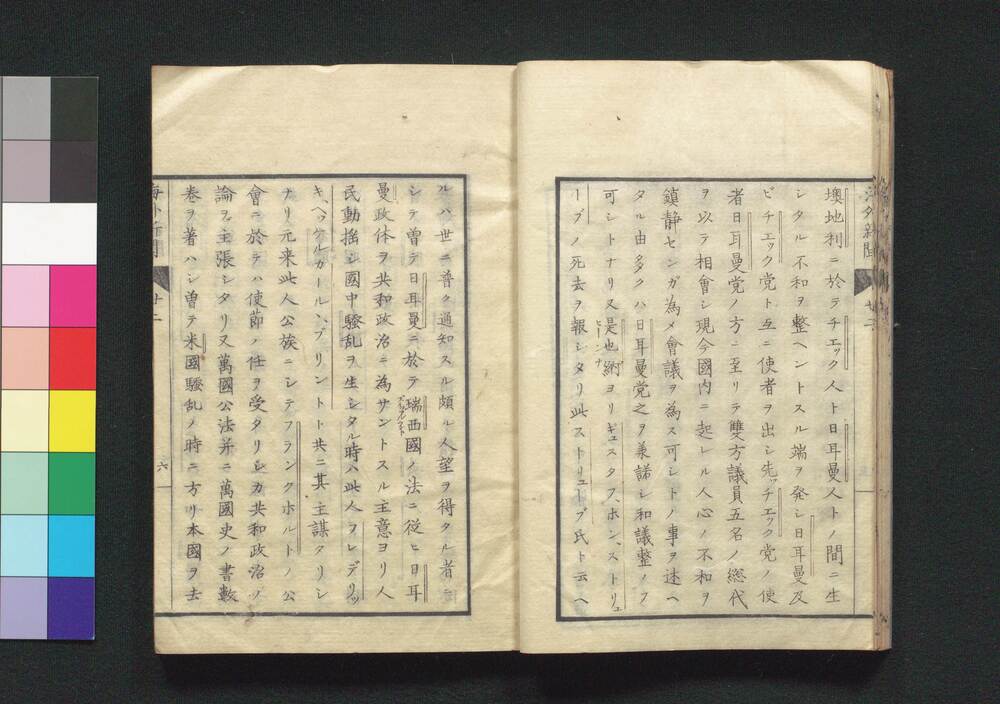 墺地利ニ於テチエック人ト日耳曼人トノ間ニ生
シタル不和ヲ整ヘントスル端ヲ発シ日耳曼及
ビチエック党ト互ニ使者ヲ出シ先ッチエック党ノ使
者日耳曼党ノ方ニ至リテ雙方議員五名ノ総代
ヲ以テ相會シ現今國内ニ起レル人心ノ不和ヲ
鎮静センガ為メ會議ヲ為ス可シトノ事ヲ述ヘ
タル由多クハ日耳曼党之ヲ兼諾シ和議整ノフ
可シトナリ又是也納ヨリギュスタフ、ホン、ストリュ
ヒーンナ
ーブノ死去ヲ報シタリ此ストリューブ氏ト云ヘ
海外新聞
廿二
ルハ世ニ普ク通知スル頗ル人望ヲ得タル者ニ
シテ曽テ日耳曼ニ於テ瑞西國ノ法ニ従ヒ日耳
曼政体ヲ共和政治ニ為サントスル主意ヨリ人
民動揺シ國中騒乱ヲ生シタル時ハ此人フレデリッ
キ、ヘッケルカール、ブリントト共ニ其主謀タリシ
ナリ元来此人公族ニシテフランクホルトノ公
會ニ於テハ使節ノ任ヲ受タリシカ共和政治ノ
論ヲ主張シタリ又萬國公法并ニ萬國史ノ書数
巻ヲ著ハシ曽テ米國騒乱ノ時ニ方リ本國ヲ去
海外新聞
廿二
六